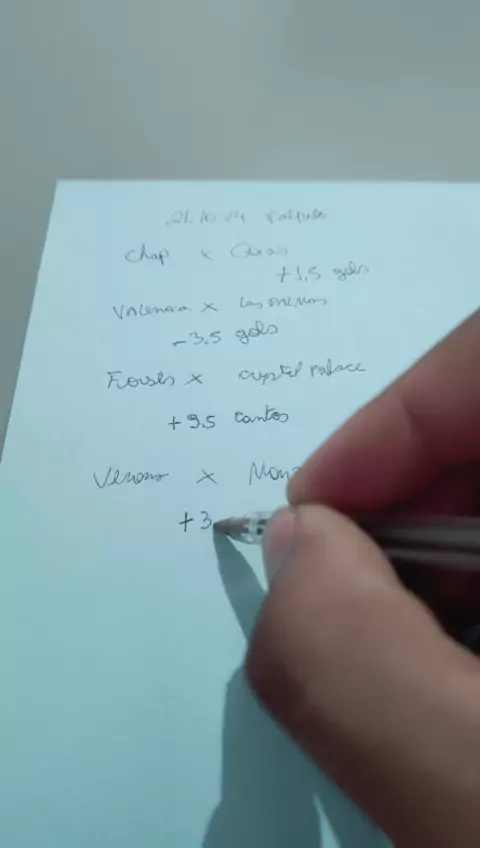 21.10.24 Palpites
Chap x Goias
+1,5 gols
Valencia x Las Palmas
-3.5 gols
Forest x crystal palace
+9.5 cantos
Verona x Monz
+3